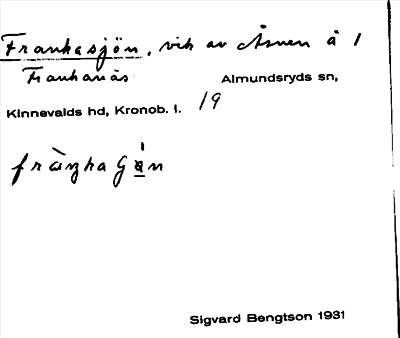 Frankasjön, vik av Åsnen å 1
Frankanäs Almundsryds sn,
Kinnevalds hd, Kronob. l. 19
Sigvard Bengtson 1931